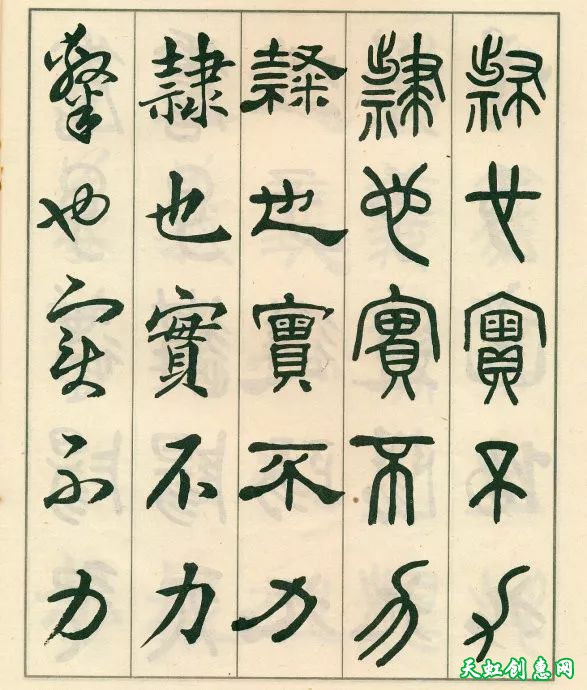 隸也實不力
隸也實不力
隸也實不力
隸也實不力
隸也實不力
天虹创惠网